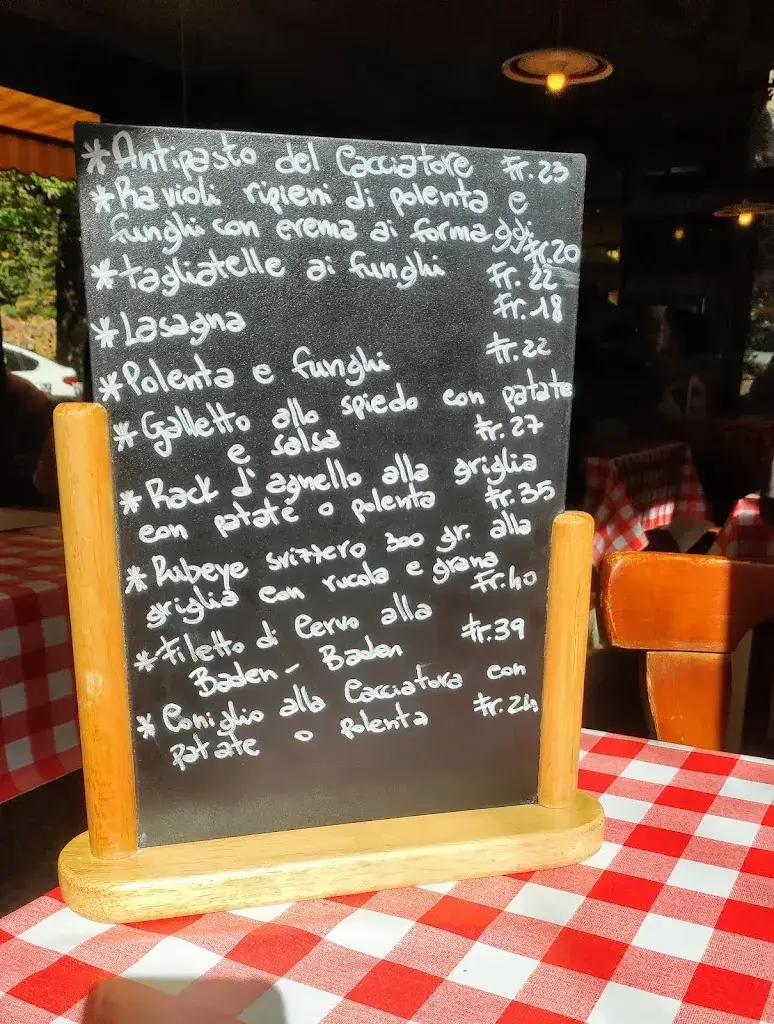 *Antipasto del Cacciatore Fr. 23
*Ravioli ripieni di polenta e
funghi con crema ai formaggi Fr. 20
*tagliatelle ai funghi Fr. 22
*Lasagna Fr. 18
*Polenta e funghi Fr. 22
*Galletto allo spiedo con patate
e salsa Fr. 27
*Rack d'agnello alla griglia
con patate o polenta Fr. 35
*Ribeye svizzero 300 gr. alla
griglia con rucola e grana Fr. 40
*Filetto di Cervo alla
Baden-Baden Fr. 39
*Coniglio alla Cacciatora con
patate o polenta Fr. 24